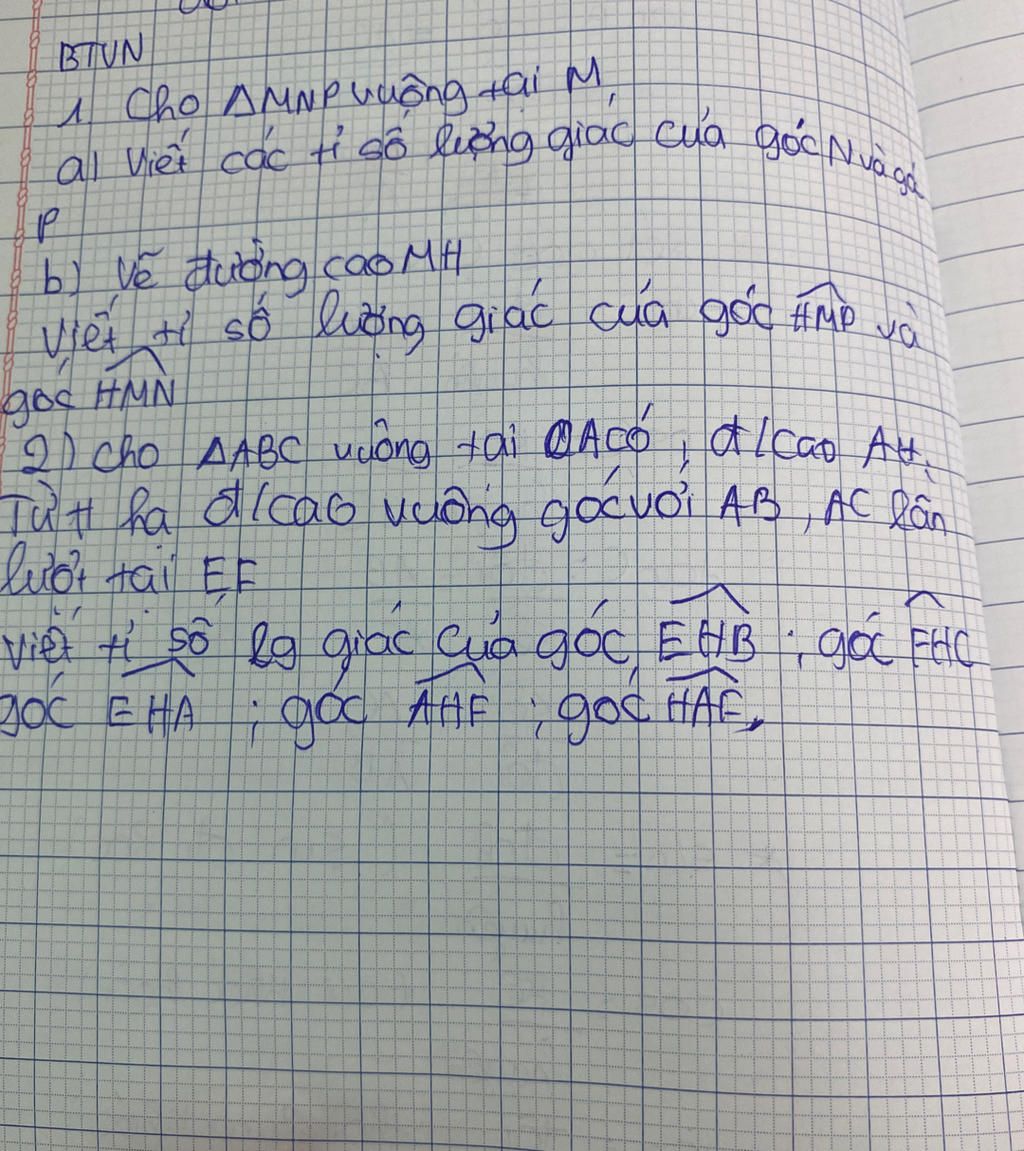 BTVN
1 Cho ΔMNP vuông tại M
a) Viết các tỉ số lượng giác của góc N và gó
P
b) Vẽ đường cao MH
Viết tỉ số lượng giác của góc HMP và
góc HMN
2) cho ΔABC vuông tại A có, đ/cao AH.
Từ H hạ đ/cao vuông góc với AB, AC lần
lượt tại EF
viết tỉ số lg giác của góc EHB ; góc FHC
góc EHA ; góc AHF ; góc HAF.